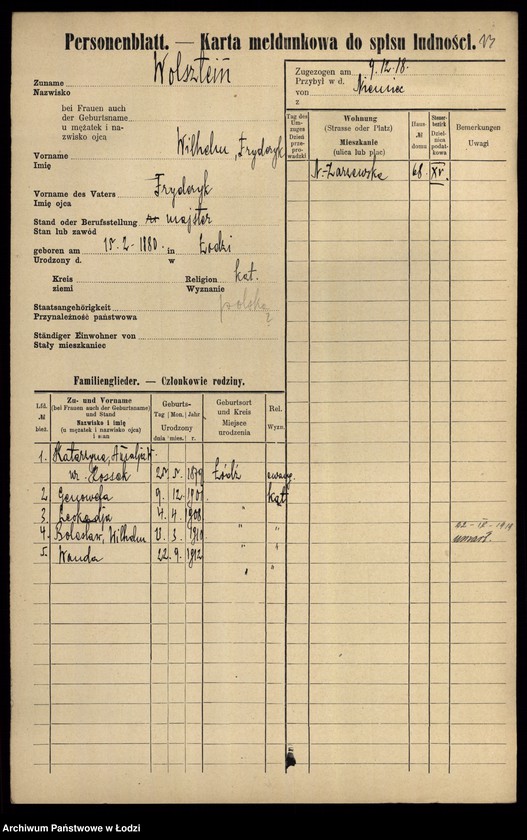 Personenblatt. — Karta meldunkowa do spisu ludności.
Zuname Wolsztein
Nazwisko
bei Frauen auch
der Geburtsname
u mężatek i na-
zwisko ojca
Vorname Wilhelm, Fryderyk
Imię
Vorname des Vaters Fryderyk
Imię ojca
Stand oder Berufsstellung majster
Stan lub zawód
geboren am 15.-2-1880. in Łodzi
Urodzony d. w
Kreis Religion kat.
ziemi Wyznanie
Staatsangehörigkeit polska
Przynależność państwowa ?
Ständiger Einwohner von
Stały mieszkaniec
Zugezogen am 9.12.18.
Przybył w d.
von Niemiec
z
Tag des Um-zuges Dzień prze-prowadzki
Wohnung
(Strasse oder Platz)
Mieszkanie
(ulica lub plac)
Haus-№ domu
Steuer-bezirk Dziel-nica podat-kowa
Bemerkungen
Uwagi
N.-Zarzewska 68 XV.
Familienglieder. — Członkowie rodziny.
Lfd. № bież.
Zu- und Vorname
(bei Frauen auch der Geburtsname)
und Stand
Nazwisko i imię
(u mężatek i nazwisko ojca)
i stan
Geburts-
Tag Mon. Jahr
Urodzony
dnia mies. r.
Geburtsort
und Kreis
Miejsce
urodzenia
Rel.
Wyzn.
1. Katarzyna,
ur. Kossak 25. 5. 1879 Łódź ewang.
2. Genowefa 9. 12. 1901 " kat
3. Leokadja 4. 4. 1908. "
4. Bolesław, Wilhelm 3. 1910 " "
umarł.
5. Wanda 22. 9. 1912 " "
Archiwum Państwowe w Łodzi